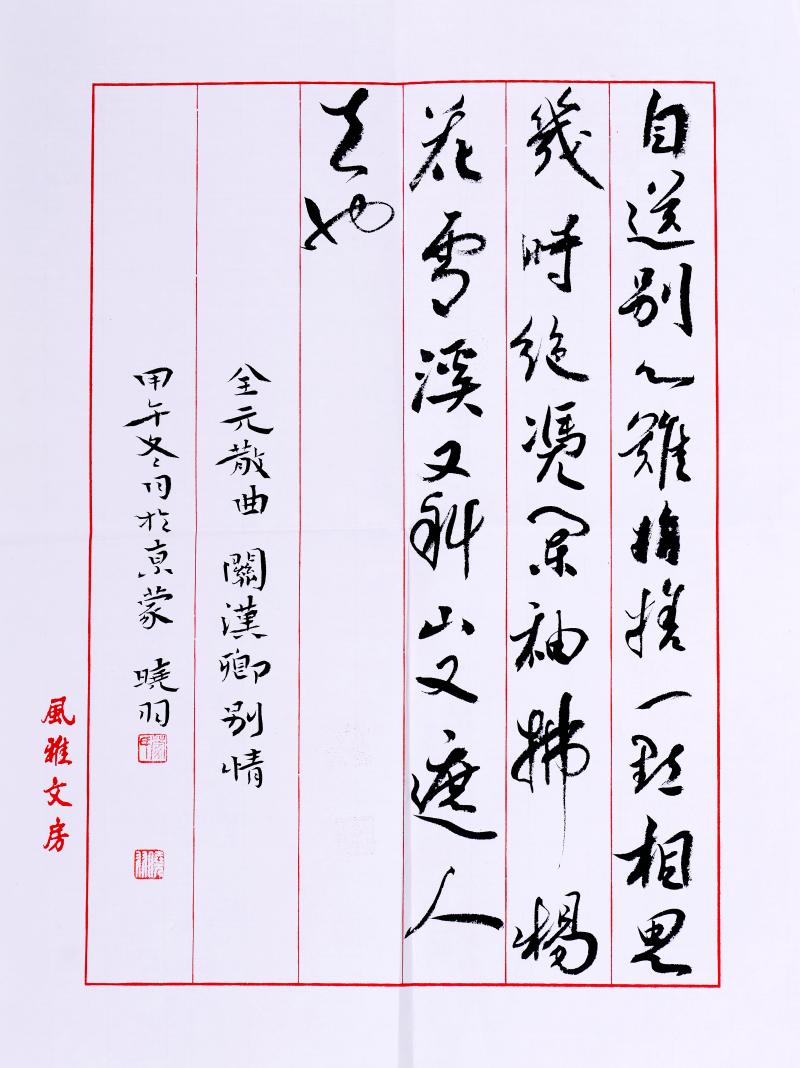 自送别心難捨一點相思
幾時絶憑闌袖拂楊
花雪溪又斜山又遮人
去也
全元散曲 關漢卿别情
甲午冬月於京蒙 曉羽
風雅文房